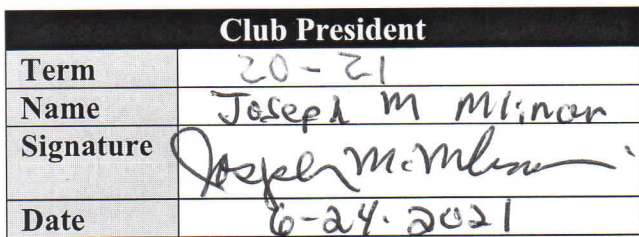 Club President
Term 20-21
Name Joseph M Mlinar
Signature Joseph M. Mlinar
Date 6-24-2021